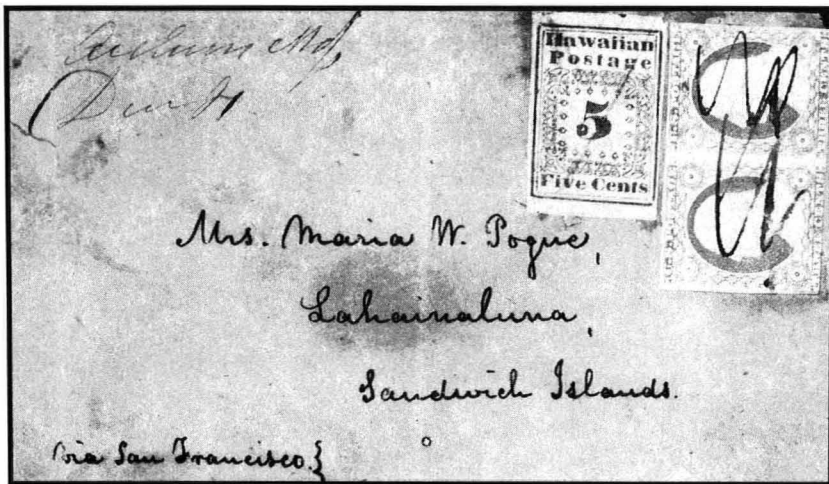 Hawaiian
Postage
5
Five Cents
Mrs. Maria W. Pogue,
Lahainaluna,
Sandwich Islands.
via San Francisco.